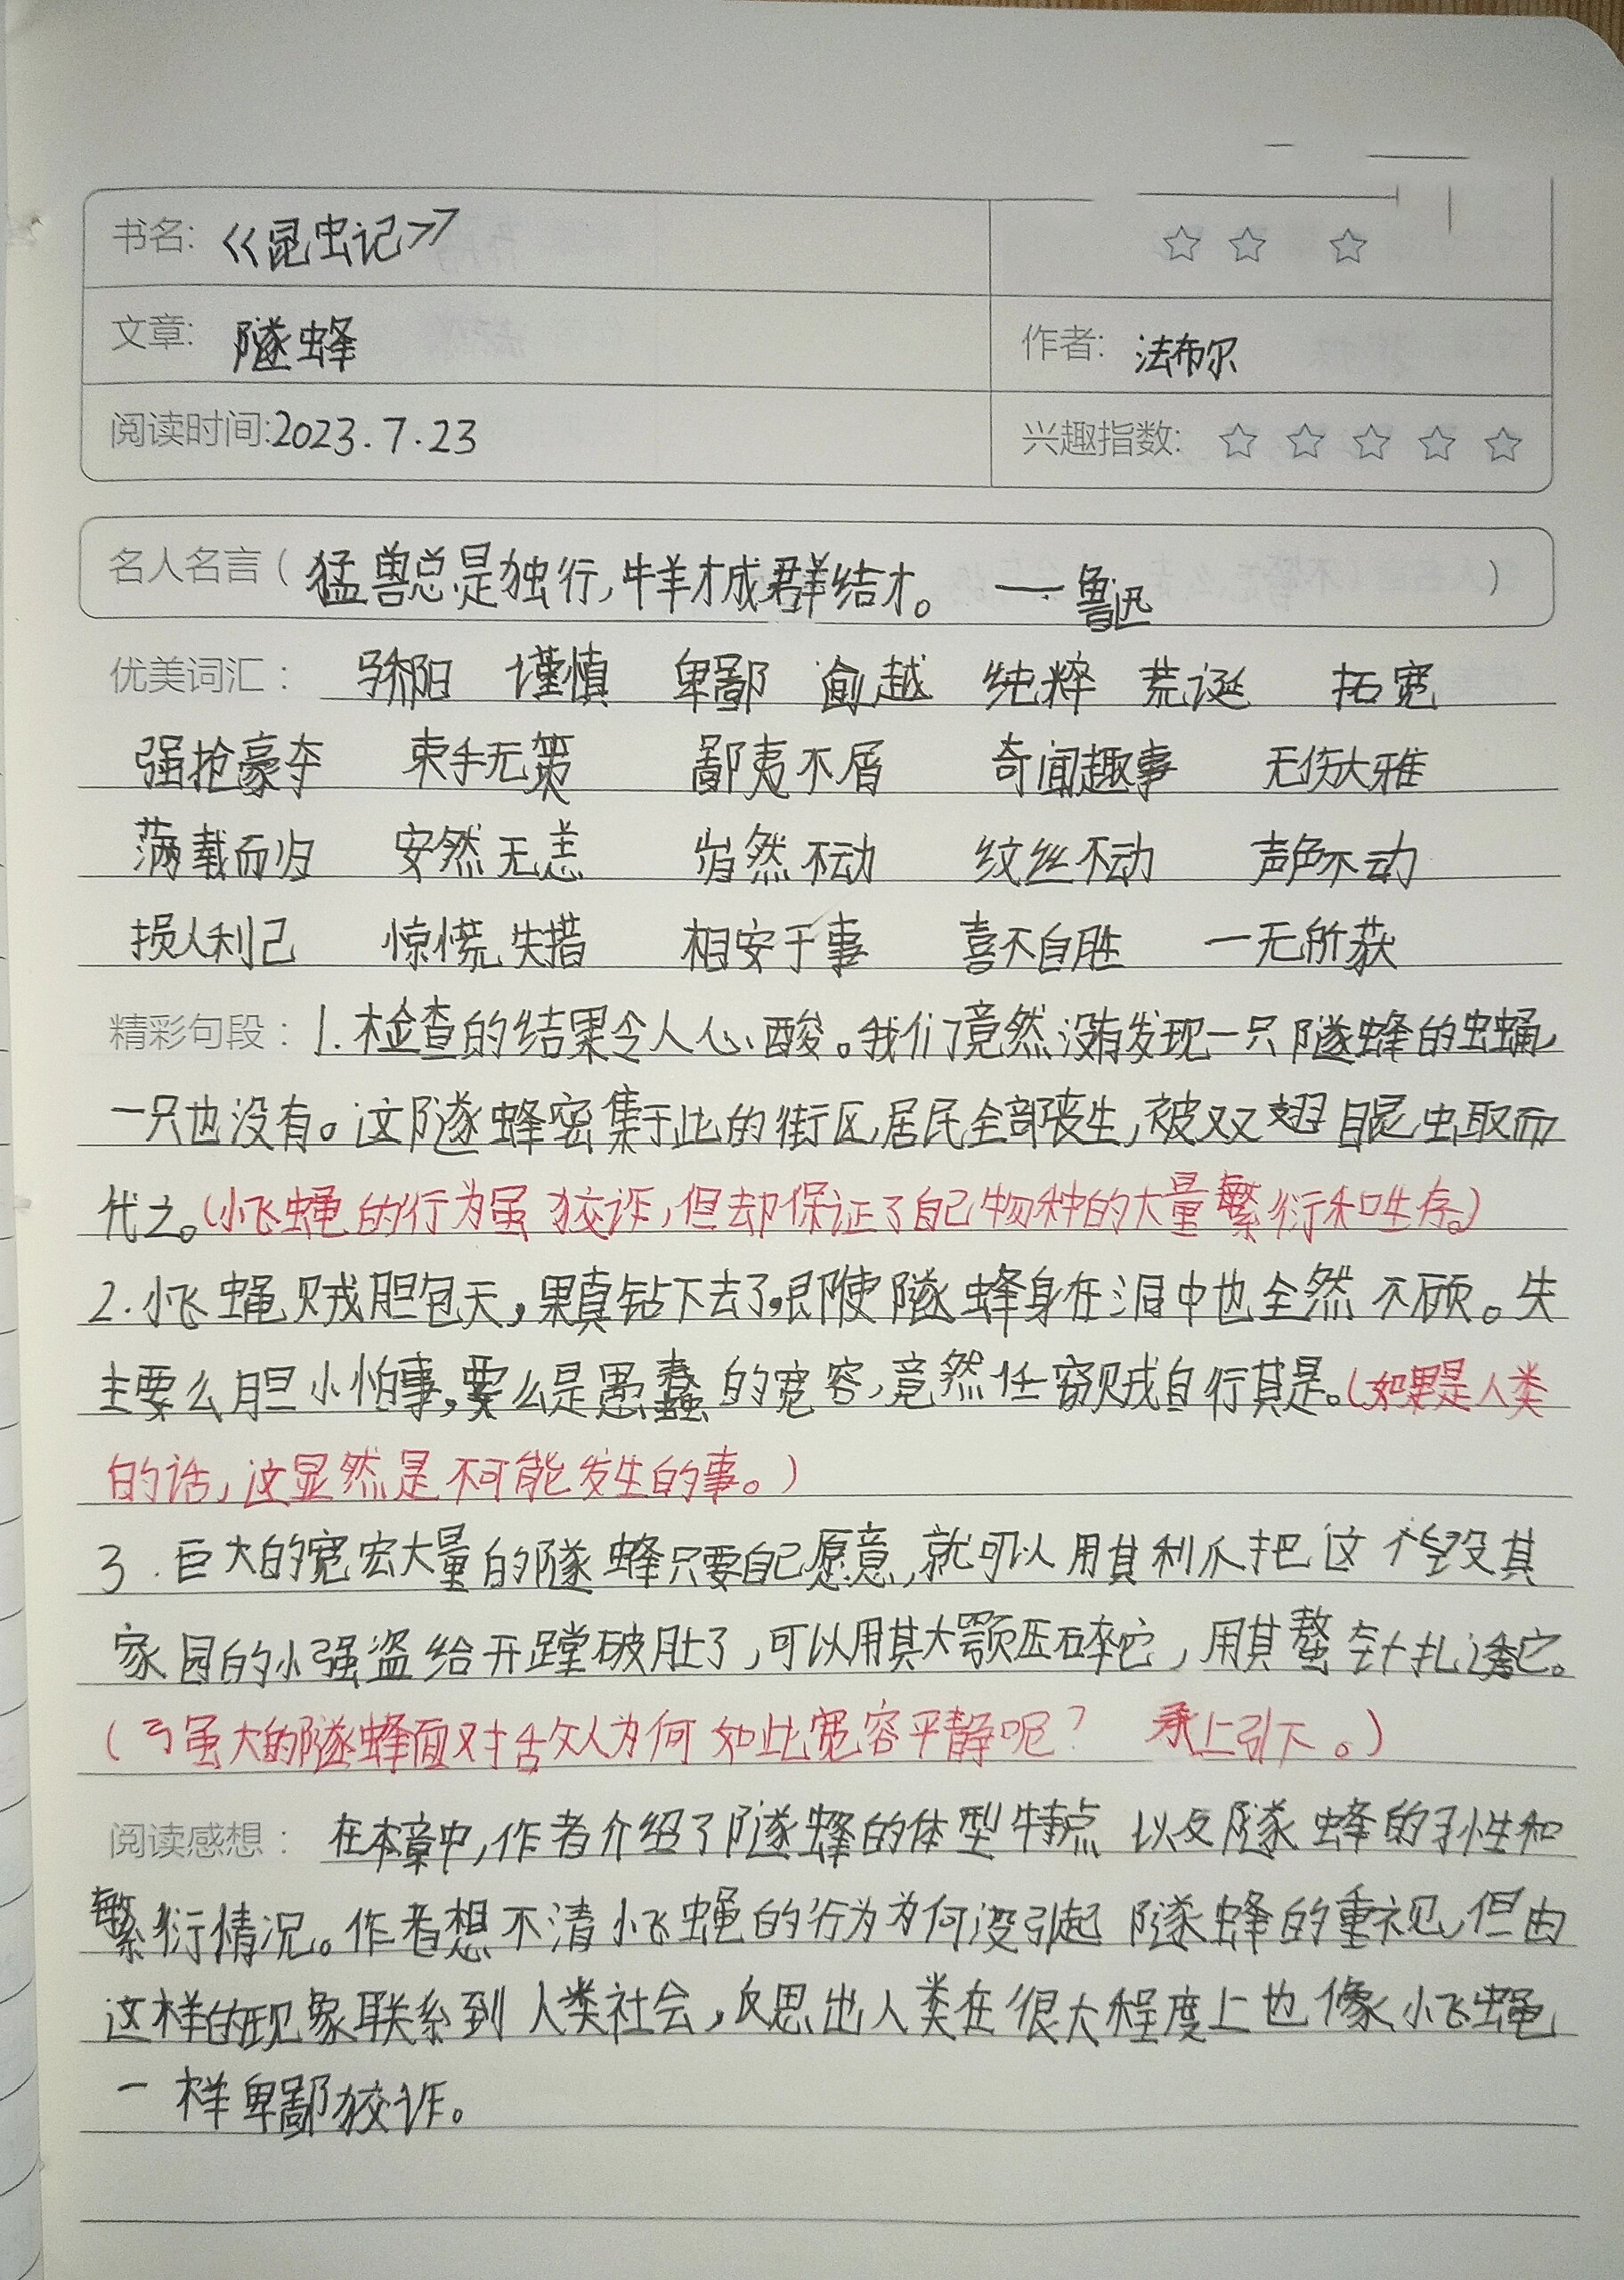 书名: 《昆虫记》 ☆ ☆ ☆
文章: 隧蜂 作者: 法布尔
阅读时间:2023.7.23 兴趣指数: ☆ ☆ ☆ ☆ ☆
名人名言( 猛兽总是独行,牛羊才成群结才。 ——鲁迅 )
优美词汇: 骄阳 谨慎 卑鄙 逾越 纯粹 荒诞 拓宽
强抢豪夺 束手无策 鄙夷不屑 奇闻趣事 无伤大雅
满载而归 安然无恙 岿然不动 纹丝不动 声色不动
损人利己 惊慌失措 相安于事 喜不自胜 一无所获
精彩句段: 1.检查的结果令人心酸。我们竟然没有发现一只隧蜂的虫蛹,
一只也没有。这隧蜂密集于此的街区,居民全部丧生,被双翅昆虫取而
代之。(小飞蝇的行为虽狡诈,但却保证了自己物种的大量繁衍和生存。)
2.小飞蝇贼胆包天,果真钻下去了,即使隧蜂身在洞中也全然不顾。失
主要么胆小怕事,要么是愚蠢的宽容,竟然任窃贼自行其是。(如果是人类
的话,这显然是不可能发生的事。)
3.巨大的宽宏大量的隧蜂只要自己愿意,就可以用其利爪把这个毁其
家园的小强盗给开膛破肚了,可以用其大颚压碎它,用其螯针扎透它。
(强大的隧蜂面对敌人为何如此宽容平静呢? 承上引下。)
阅读感想: 在本章中,作者介绍了隧蜂的体型特点以及隧蜂的习性和
繁衍情况。作者想不清小飞蝇的行为为何没引起隧蜂的重视,但由
这样的现象联系到人类社会,反思出人类在很大程度上也像小飞蝇
一样卑鄙狡诈。